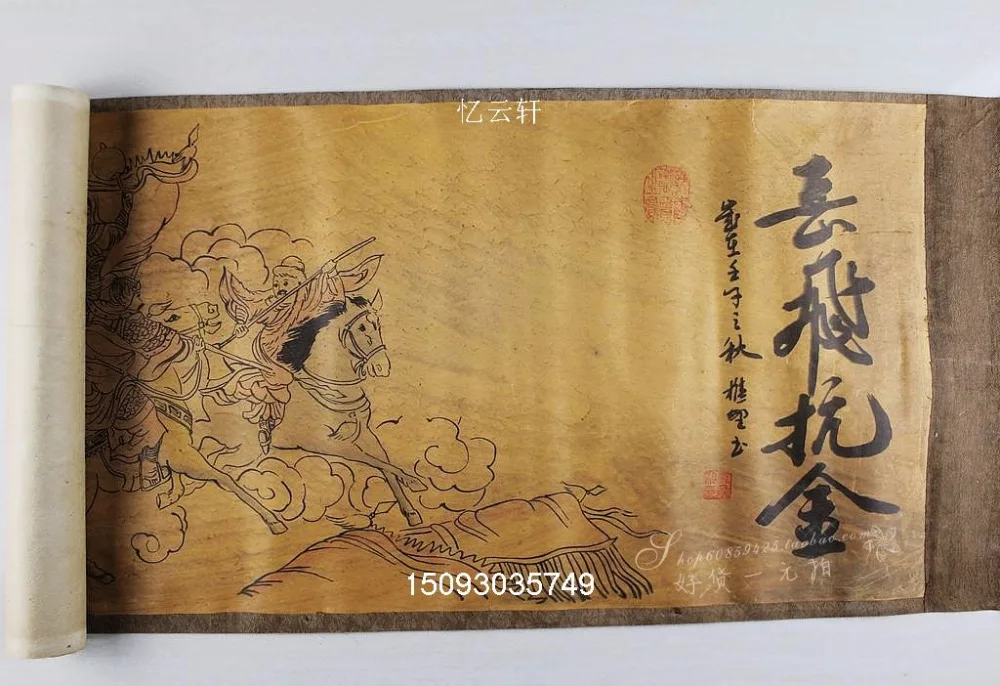 忆云轩
岳飛抗金
歲在壬子之秋
书
15093035749
Shop60859425.taobao.com
好货一元拍